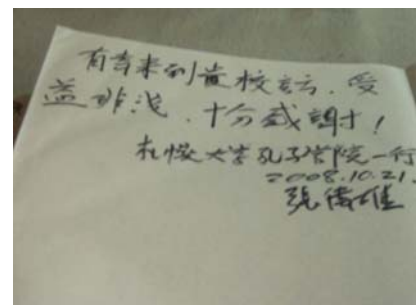 有幸来到貴校訪玄、受
益非浅、十分感謝！
札幌大学孔子学院一行
2008.10.21.
張偉雄